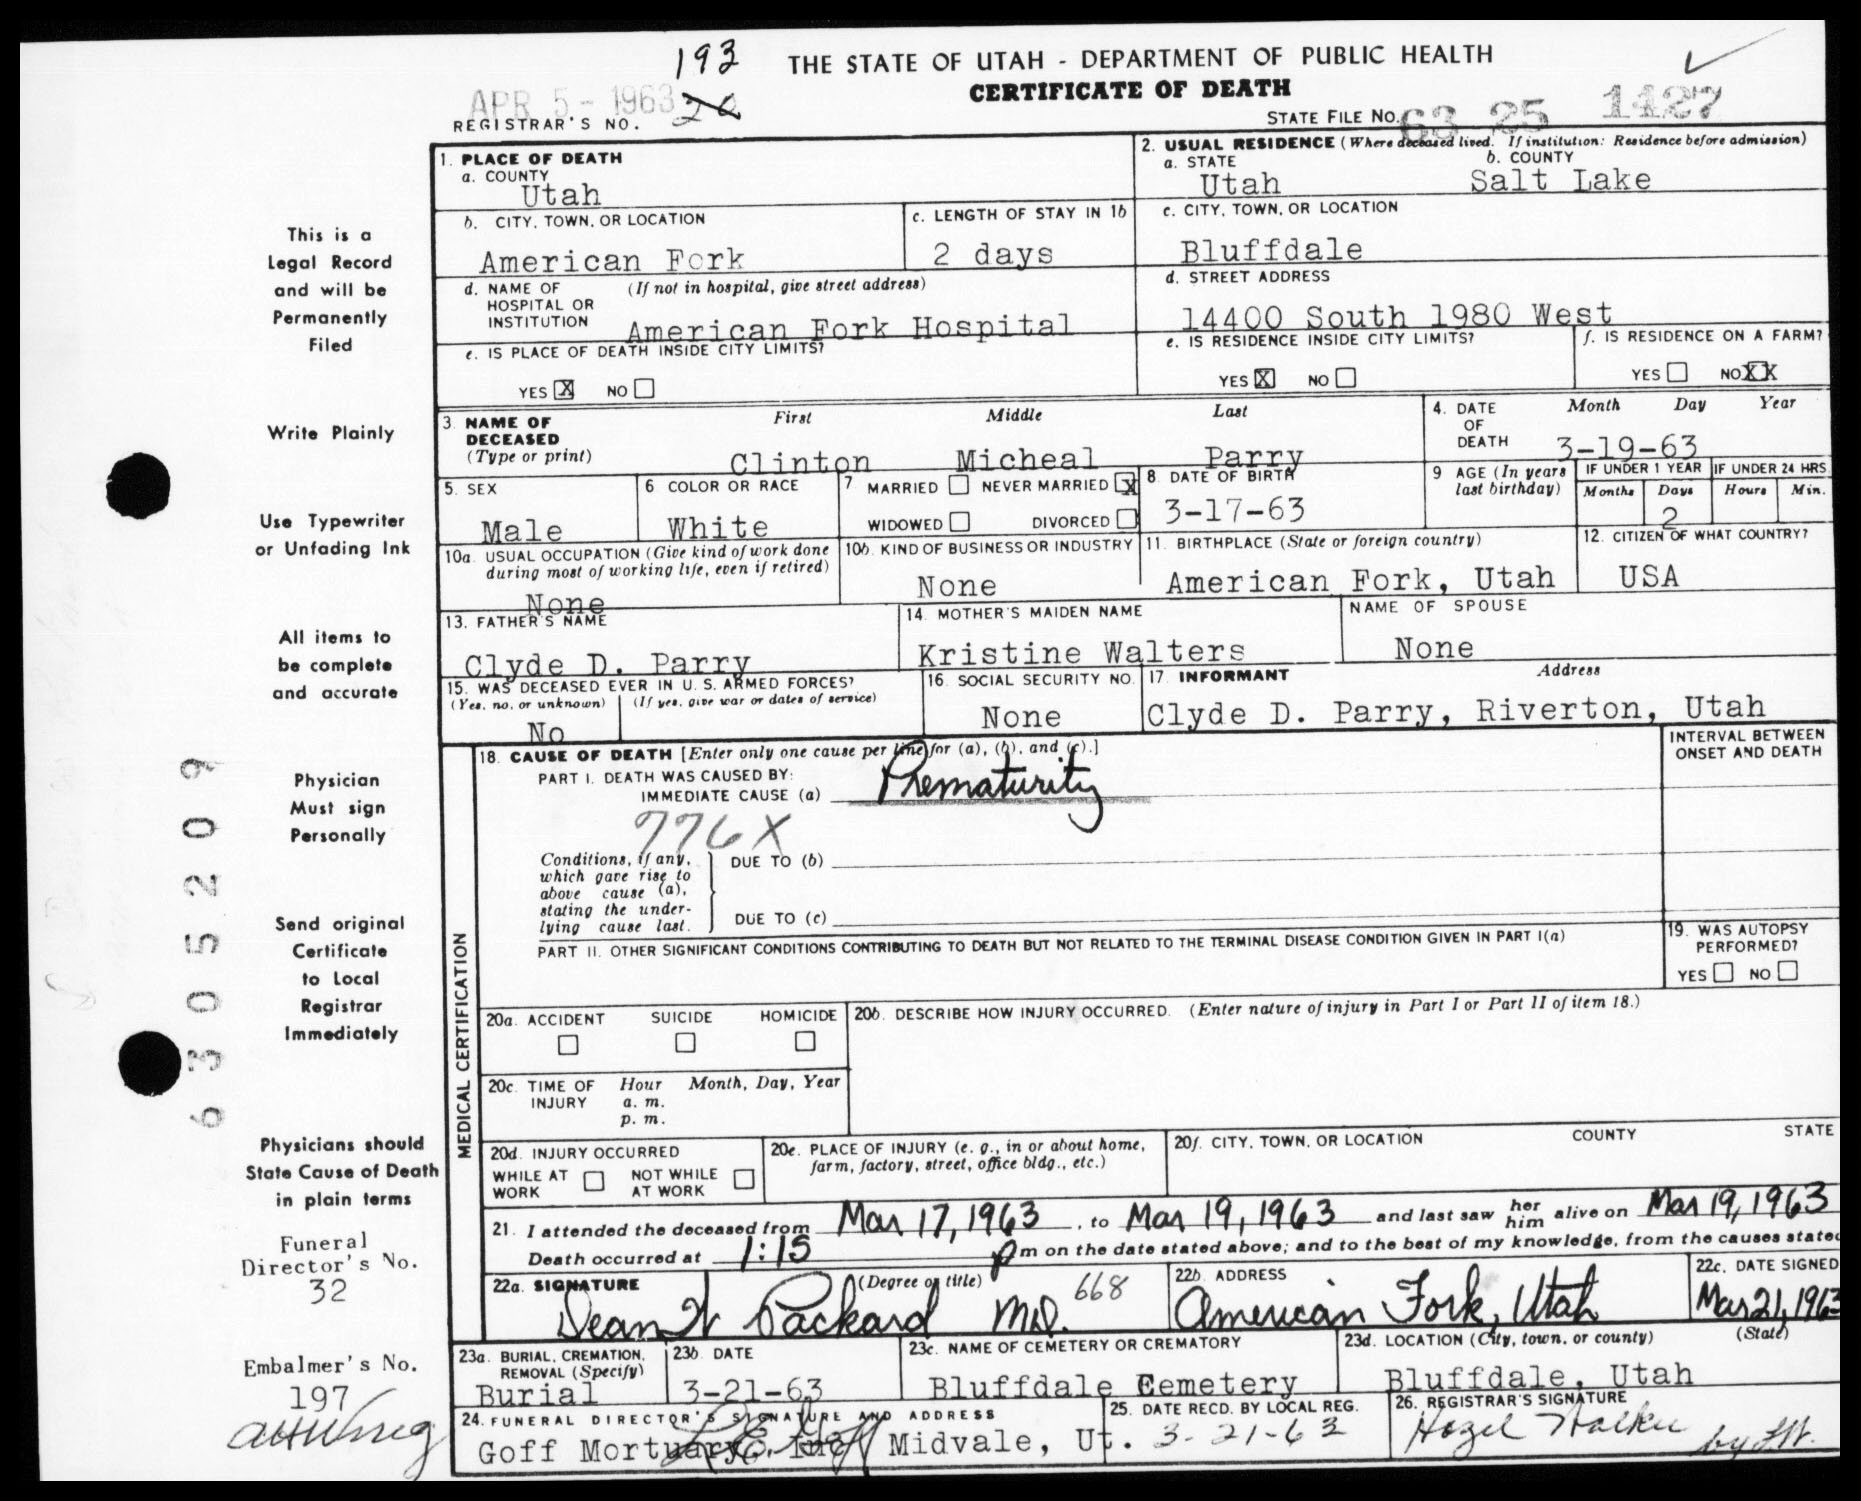 193
THE STATE OF UTAH - DEPARTMENT OF PUBLIC HEALTH
CERTIFICATE OF DEATH
APR 5 - 1963
REGISTRAR'S NO.
STATE FILE NO. 63 25 1427
1. PLACE OF DEATH
a. COUNTY
Utah
2. USUAL RESIDENCE (Where deceased lived. If institution: Residence before admission)
a. STATE b. COUNTY
Utah Salt Lake
b. CITY, TOWN, OR LOCATION
American Fork
c. LENGTH OF STAY IN 1b
2 days
c. CITY, TOWN, OR LOCATION
Bluffdale
d. NAME OF (If not in hospital, give street address)
HOSPITAL OR
INSTITUTION
American Fork Hospital
d. STREET ADDRESS
14400 South 1980 West
e. IS PLACE OF DEATH INSIDE CITY LIMITS?
YES X NO
e. IS RESIDENCE INSIDE CITY LIMITS?
YES X NO
f. IS RESIDENCE ON A FARM?
YES NO XX
3. NAME OF
DECEASED
(Type or print)
First Middle Last
Clinton Micheal Parry
4. DATE
OF
DEATH
Month Day Year
3-19-63
5. SEX
Male
6 COLOR OR RACE
White
7 MARRIED NEVER MARRIED X
WIDOWED DIVORCED
8. DATE OF BIRTH
3-17-63
9 AGE (In years
last birthday)
IF UNDER 1 YEAR IF UNDER 24 HRS.
Months Days Hours Min.
2
10a. USUAL OCCUPATION (Give kind of work done
during most of working life, even if retired)
None
10b. KIND OF BUSINESS OR INDUSTRY
None
11. BIRTHPLACE (State or foreign country)
American Fork, Utah
12. CITIZEN OF WHAT COUNTRY?
USA
13. FATHER'S NAME
Clyde D. Parry
14. MOTHER'S MAIDEN NAME
Kristine Walters
NAME OF SPOUSE
None
15. WAS DECEASED EVER IN U. S. ARMED FORCES?
(Yes, no, or unknown) (If yes, give war or dates of service)
No
16. SOCIAL SECURITY NO.
None
17. INFORMANT Address
Clyde D. Parry, Riverton, Utah
MEDICAL CERTIFICATION
18. CAUSE OF DEATH [Enter only one cause per line for (a), (b), and (c).]
PART I. DEATH WAS CAUSED BY:
IMMEDIATE CAUSE (a) Prematurity
776X
INTERVAL BETWEEN
ONSET AND DEATH
Conditions, if any,
which gave rise to
above cause (a),
stating the under-
lying cause last.
DUE TO (b)
DUE TO (c)
PART II. OTHER SIGNIFICANT CONDITIONS CONTRIBUTING TO DEATH BUT NOT RELATED TO THE TERMINAL DISEASE CONDITION GIVEN IN PART I(a)
19. WAS AUTOPSY
PERFORMED?
YES NO
20a. ACCIDENT SUICIDE HOMICIDE
20b. DESCRIBE HOW INJURY OCCURRED. (Enter nature of injury in Part I or Part II of item 18.)
20c. TIME OF Hour Month, Day, Year
INJURY a. m.
p. m.
20d. INJURY OCCURRED
WHILE AT
WORK
NOT WHILE
AT WORK
20e. PLACE OF INJURY (e. g., in or about home,
farm, factory, street, office bldg., etc.)
20f. CITY, TOWN, OR LOCATION COUNTY STATE
21. I attended the deceased from Mar 17, 1963, to Mar 19, 1963 and last saw her him alive on Mar 19, 1963
Death occurred at 1:15 p m on the date stated above; and to the best of my knowledge, from the causes stated
22a. SIGNATURE (Degree or title)
Dean H Packard MD. 668
22b. ADDRESS
American Fork, Utah
22c. DATE SIGNED
Mar 21, 1963
23a. BURIAL, CREMATION,
REMOVAL (Specify)
Burial
23b. DATE
3-21-63
23c. NAME OF CEMETERY OR CREMATORY
Bluffdale Cemetery
23d. LOCATION (City, town, or county) (State)
Bluffdale, Utah
24. FUNERAL DIRECTOR'S SIGNATURE AND ADDRESS
Goff Mortuary, Inc. Midvale, Ut.
25. DATE RECD. BY LOCAL REG.
3-21-63
26. REGISTRAR'S SIGNATURE
Hazel Walker
by
This is a
Legal Record
and will be
Permanently
Filed
Write Plainly
Use Typewriter
or Unfading Ink
All items to
be complete
and accurate
Physician
Must sign
Personally
Send original
Certificate
to Local
Registrar
Immediately
Physicians should
State Cause of Death
in plain terms
Funeral
Director's No.
32
Embalmer's No.
197
6305209